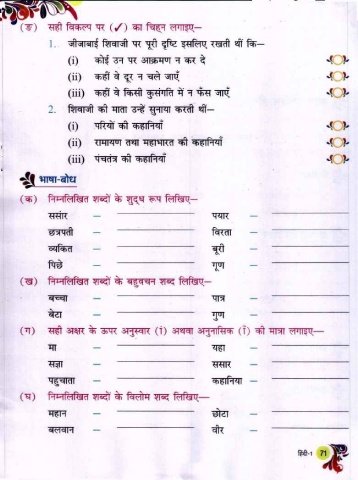 (ङ) सही विकल्प पर (✓) का चिह्न लगाइए—
1. जीजाबाई शिवाजी पर पूरी दृष्टि इसलिए रखती थीं कि—
(i) कोई उन पर आक्रमण न कर दे
(ii) कहीं वे दूर न चले जाएँ
(iii) कहीं वे किसी कुसंगति में न फँस जाएँ
2. शिवाजी की माता उन्हें सुनाया करती थीं—
(i) परियों की कहानियाँ
(ii) रामायण तथा महाभारत की कहानियाँ
(iii) पंचतंत्र की कहानियाँ
भाषा-बोध
(क) निम्नलिखित शब्दों के शुद्ध रूप लिखिए—
ससांर – पयार –
छत्रपती – विरता –
व्यकित – बूरी –
पिछे – गूण –
(ख) निम्नलिखित शब्दों के बहुवचन शब्द लिखिए—
बच्चा – पात्र –
बेटा – गुण –
(ग) सही अक्षर के ऊपर अनुस्वार (ं) अथवा अनुनासिक (ँ) की मात्रा लगाइए—
मा – यहा –
सज्ञा – ससार –
पहुचाता – कहानिया –
(घ) निम्नलिखित शब्दों के विलोम शब्द लिखिए—
महान – छोटा –
बलवान – वीर –
हिंदी-1 71